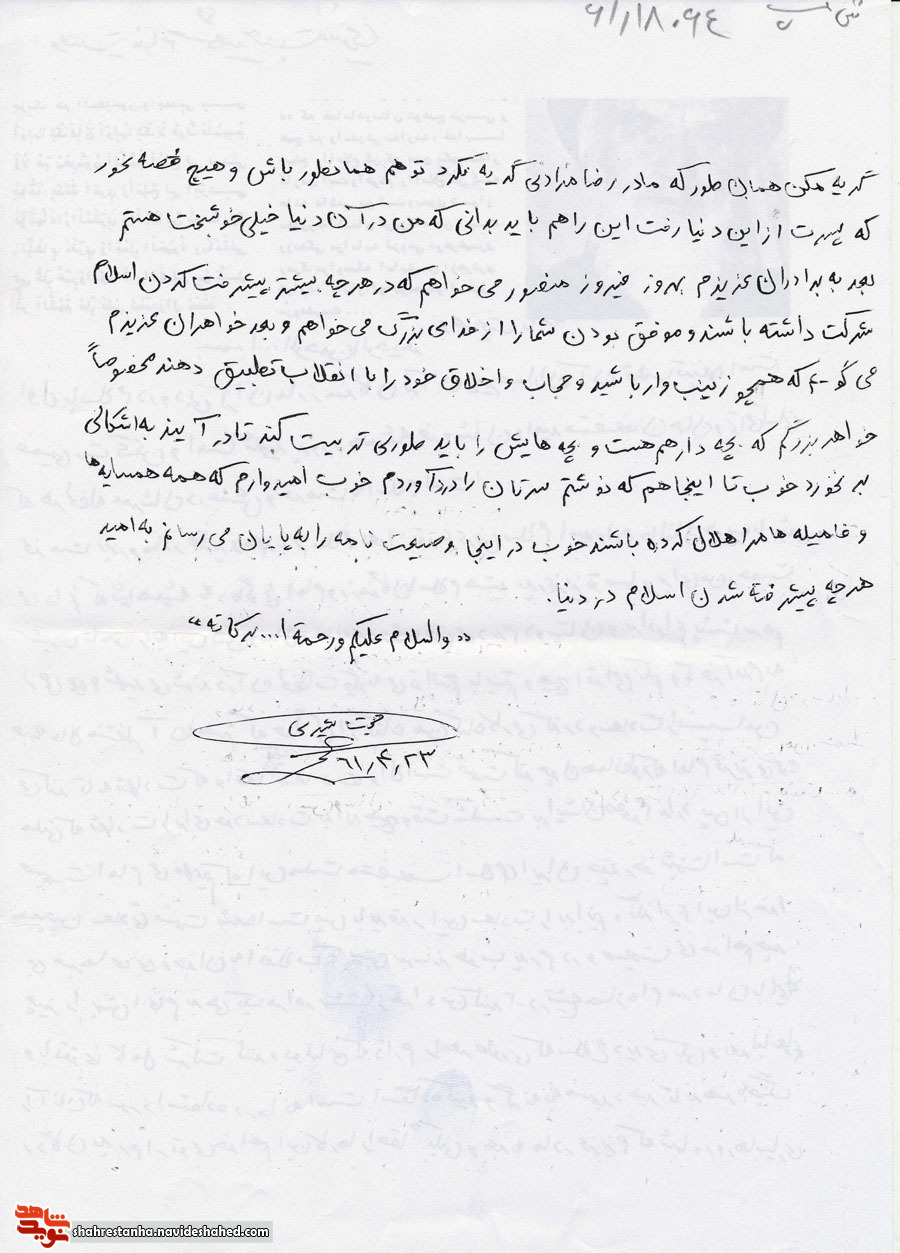 ۶۱/۱۸۰۹۴
گریه مکن همان طور که مادر رضا مرادی گریه نکرد تو هم همانطور باش و هیچ غصه نخور
که پسرت از این دنیا رفت این را هم باید بدانی که من در آن دنیا خیلی خوشبخت هستم
بعد به برادران عزیزم بهروز فیروز منصور می خواهم که در هر چه بیشتر پیشرفت کردن اسلام
شرکت داشته باشند و موفق بودن شما را از خدای بزرگ می خواهم و بعد خواهران عزیزم
می گویم که همچو زینب وار باشید و حجاب و اخلاق خود را با انقلاب تطبیق دهند مخصوصاً
خواهر بزرگم که بچه دار هم هست و بچه هایش را باید طوری تربیت کند تا در آینده به اشکالی
بر نخورد خوب تا اینجا هم که نوشتم سرتان را درد آوردم خوب امیدوارم که همه همسایه ها
و فامیله ها مرا هلال کرده باشند خوب در اینجا وصیت نامه را به پایان می رسانم به امید
هر چه پیشرفته شدن اسلام در دنیا.
«والسلام علیکم ورحمة ا... برکاته»
۶۱٫۴٫۲۳
شاهد
نوید
shahrestanha.navideshahed.com